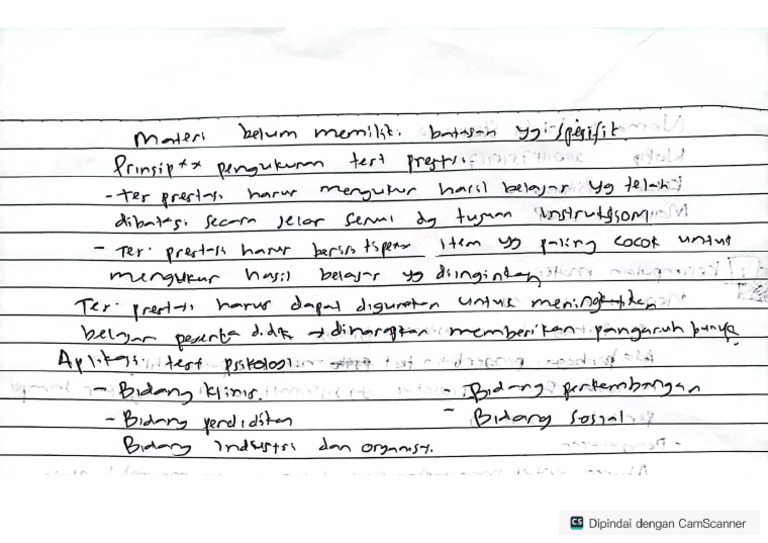 Materi belum memiliki batasan yg spesifik
Prinsip** pengukuran test prestasi
- Tes prestasi harus mengukur hasil belajar yg telah
dibatasi secara jelas sesuai dg tujuan instruksional
- Tes prestasi harus berisi item yg paling cocok untuk
mengukur hasil belajar yg diinginkan
Tes prestasi harus dapat digunakan untuk meningkatkan
belajar peserta didik → diharapkan memberikan pangaruh
Aplikasi test psikologi
- Bidang klinis. - Bidang perkembangan
- Bidang pendidikan - Bidang sosial
Bidang Industri dan organisasi.
CS Dipindai dengan CamScanner